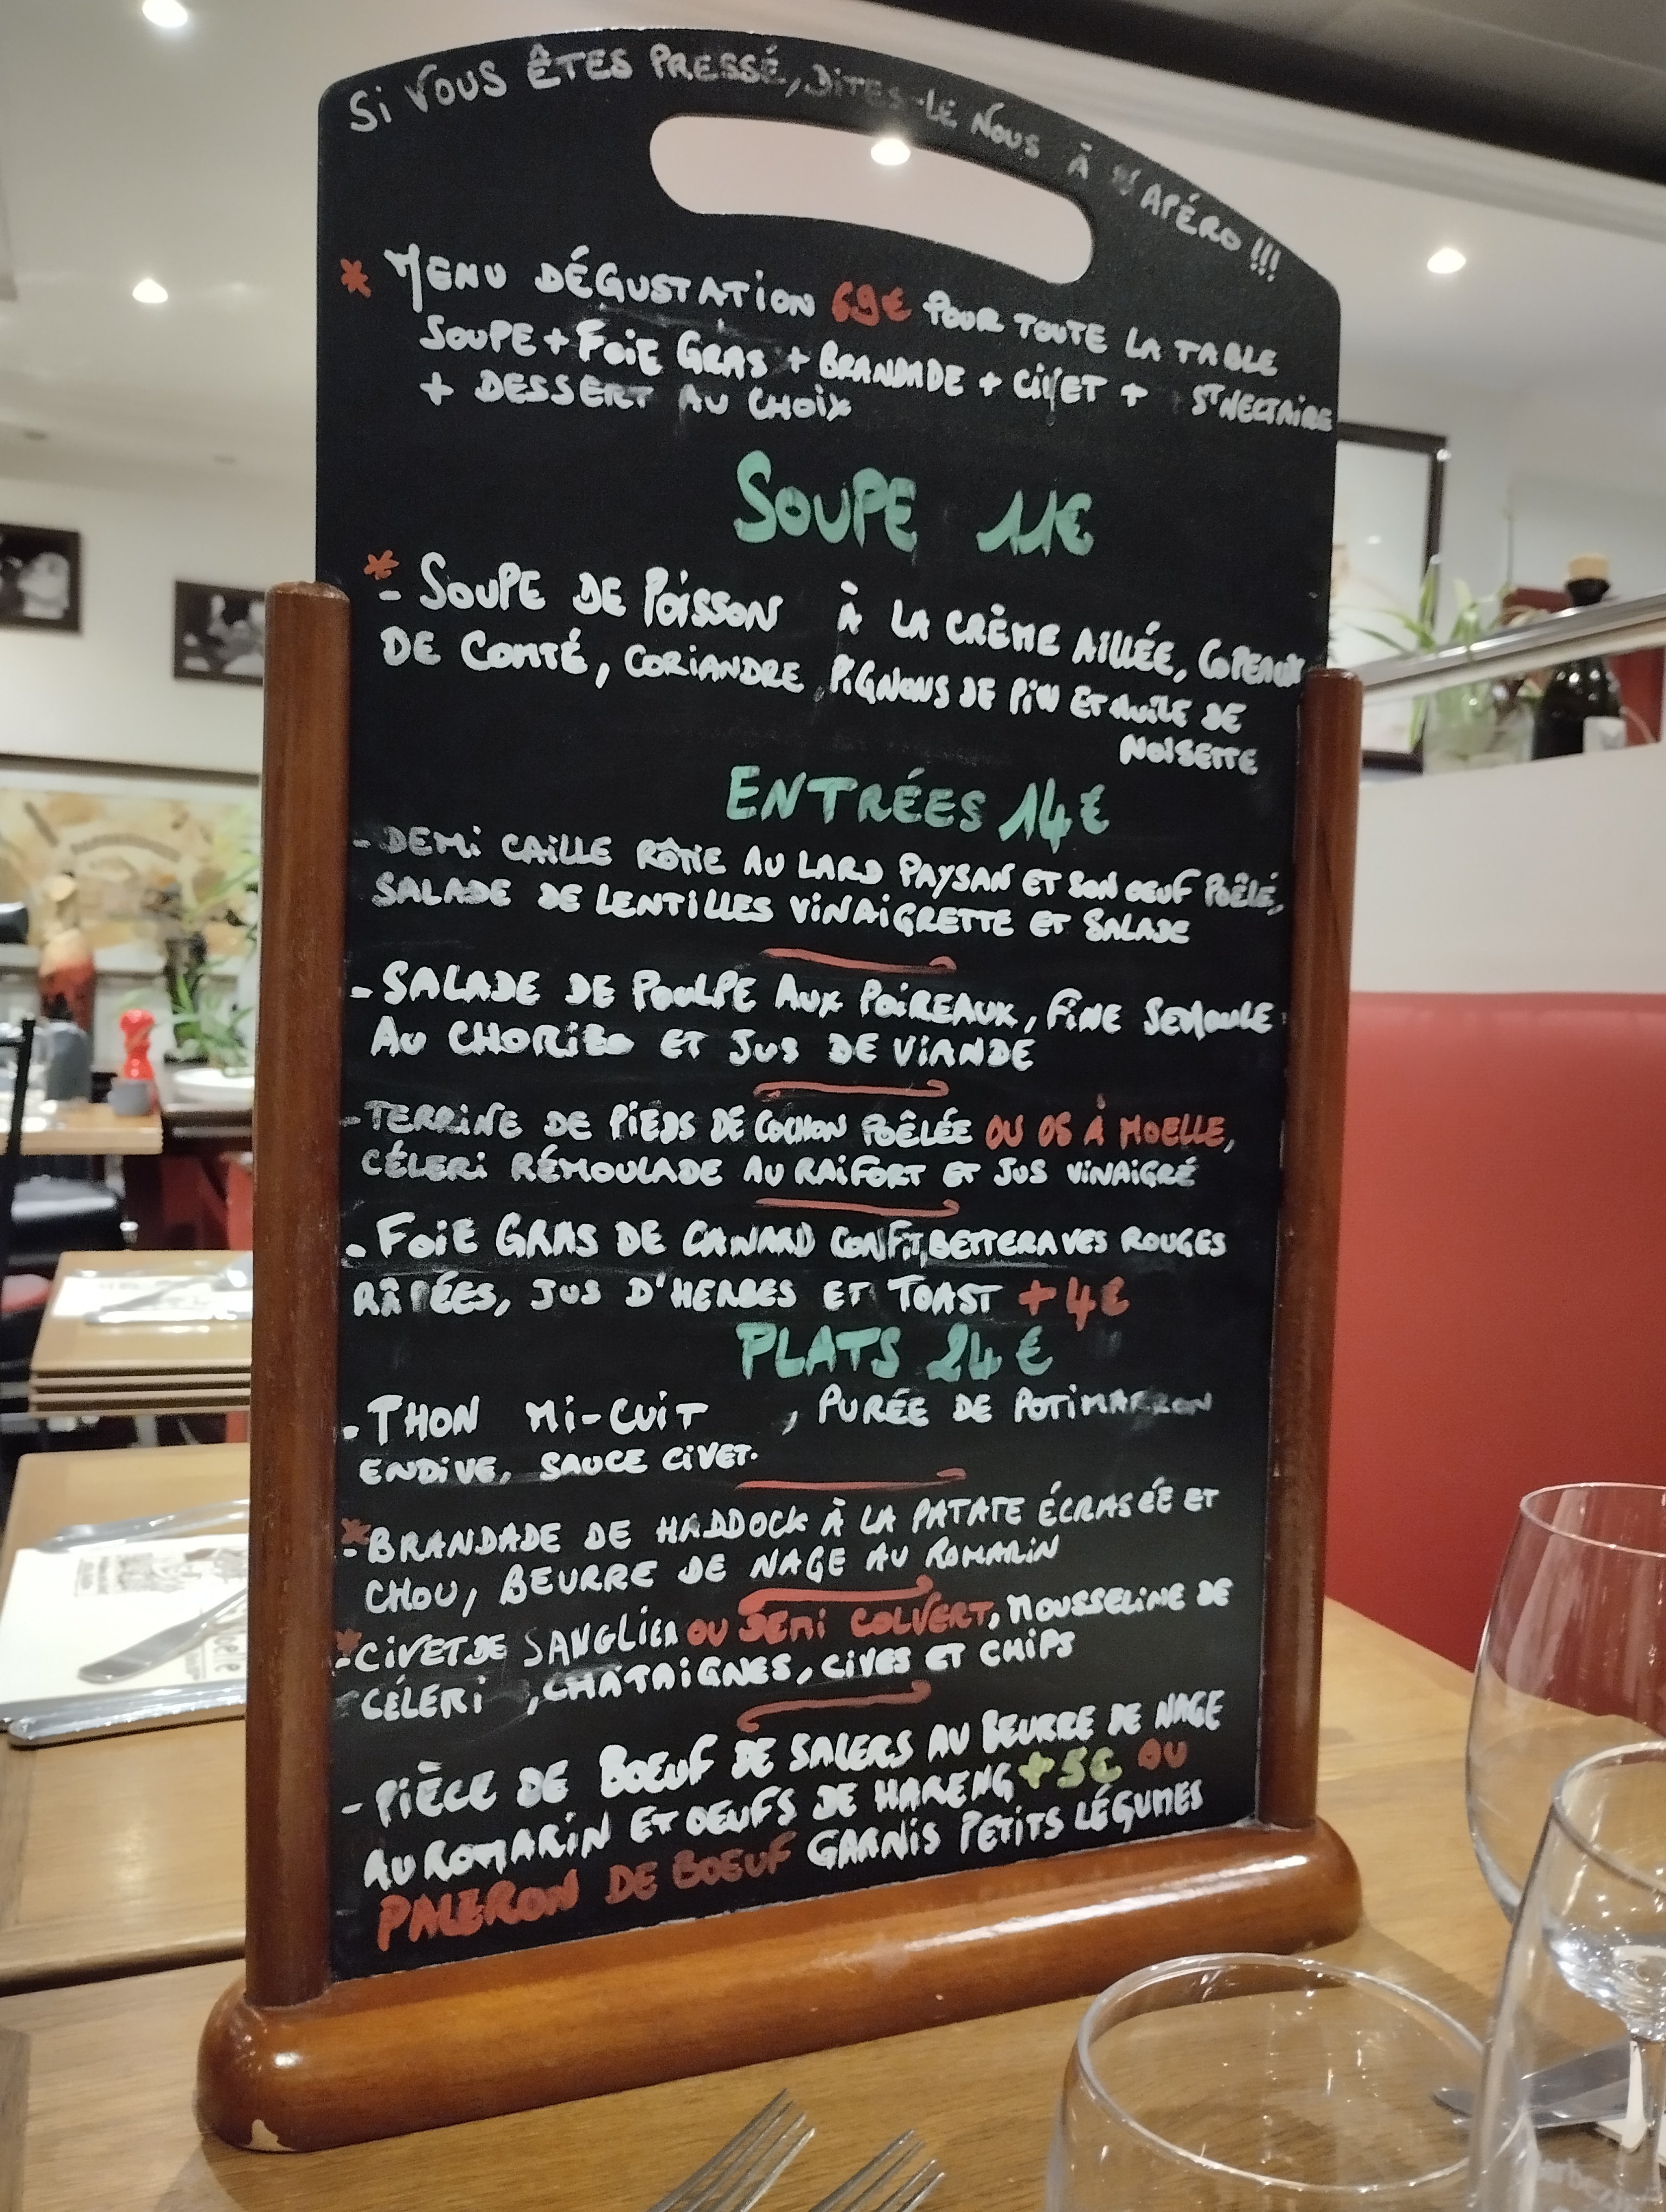 Si VOUS ÊTES PRESSÉ, DITES-LE NOUS À L'APÉRO !!!
* MENU DÉGUSTATION 69€ POUR TOUTE LA TABLE
SOUPE + FOIE GRAS + BRANDADE + CIVET + ST NECTAIRE
+ DESSERT AU CHOIX
SOUPE 11€
* - SOUPE DE POISSON À LA CRÈME AILLÉE, COPEAUX
DE COMTÉ, CORIANDRE, PIGNONS DE PIN ET HUILE DE
NOISETTE
ENTRÉES 14€
- DEMI CAILLE RÔTIE AU LARD PAYSAN ET SON OEUF POÊLÉ,
SALADE DE LENTILLES VINAIGRETTE ET SALADE
- SALADE DE POULPE AUX POIREAUX, FINE SEMOULE
AU CHORIZO ET JUS DE VIANDE
- TERRINE DE PIEDS DE COCHON POÊLÉE OU OS À MOELLE,
CÉLERI RÉMOULADE AU RAIFORT ET JUS VINAIGRÉ
- FOIE GRAS DE CANARD CONFIT, BETTERAVES ROUGES
RÂPÉES, JUS D'HERBES ET TOAST +4€
PLATS 24€
- THON MI-CUIT , PURÉE DE POTIMARRON
ENDIVE, SAUCE CIVET.
* - BRANDADE DE HADDOCK À LA PATATE ÉCRASÉE ET
CHOU, BEURRE DE NAGE AU ROMARIN
* - CIVET DE SANGLIER OU DEMI COLVERT, MOUSSELINE DE
CÉLERI , CHATAIGNES, CIVES ET CHIPS
- PIÈCE DE BOEUF DE SALERS AU BEURRE DE NAGE
AU ROMARIN ET OEUFS DE HARENG +5€ OU
PALERON DE BOEUF GARNIS PETITS LÉGUMES